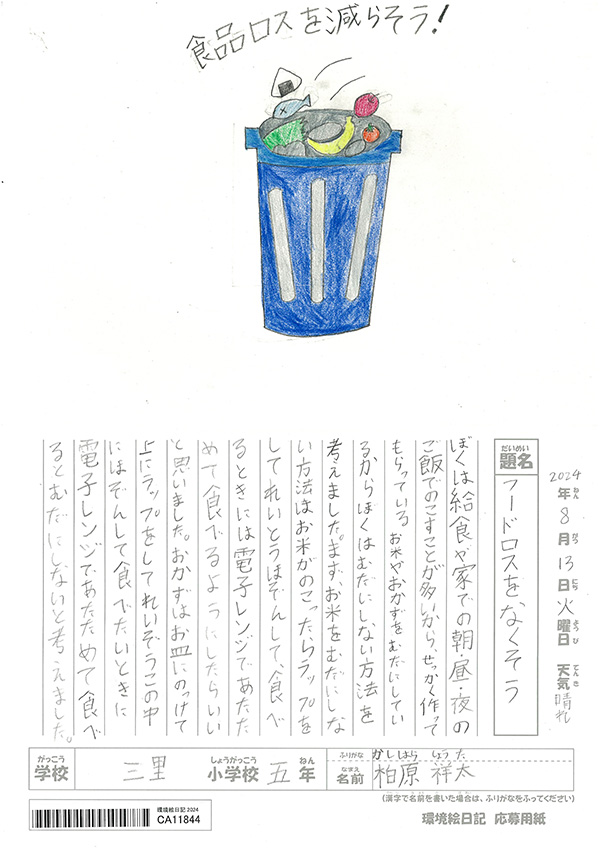 食品ロスを減らそう!
2024年8月13日火曜日 天気晴れ
ねん がつ にち ようび てんき
だいめい
題名
フードロスをなくそう
ぼくは給食や家での朝・昼・夜の
ご飯でのこすことが多いから、せっかく作って
もらっている お米やおかずを むだにしてい
るからぼくはむだにしない方法を
考えました。まず、お米をむだにしな
い方法はお米がのこったらラップを
してれいとうほぞんして、食べ
るときには電子レンジであたた
めて食べるようにしたらいい
と思いました。おかずはお皿にのっけて
上にラップをしてれいぞうこの中
にほぞんして食べたいときに
電子レンジであたためて食べ
るとむだにしないと考えました。
がっこう しょうがっこう ねん
学校 三里 小学校 五年
ふりがな かしはら しょうた
なまえ
名前 柏原 祥太
(漢字で名前を書いた場合は、ふりがなをふってください)
環境絵日記 2024
CA11844
環境絵日記 応募用紙